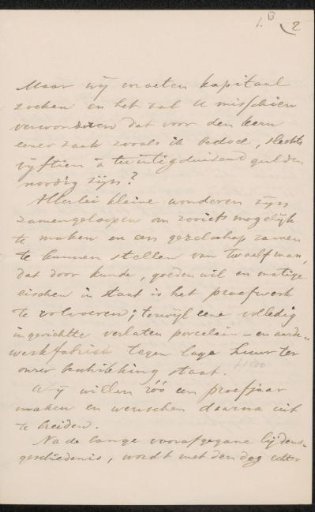 1.B 2
Maar wij moeten kapitaal
zoeken en het zal U misschien
verwonderen dat voor den kern
eener zaak zooals ik bedoel, slechts
vijftien à twintigduizend gulden
noodig zijn?
Allerlei kleine wonderen zijn
samengeloopen om zooiets mogelijk
te maken en een gezelschap samen
te kunnen stellen van twaalf man,
dat door kunde, goeden wil en matige
eischen in staat is het proefwerk
te volvoeren; terwijl eene volledig
ingerichte verlaten porcelein - en aarden
werkfabriek tegen lage huur ter
onzer beschikking staat.
Wij willen zóó een proefjaar
maken en wenschen daarna uit
te breiden.
Na de lange voorafgegane lijdens
geschiedenis, wordt met den dag echter